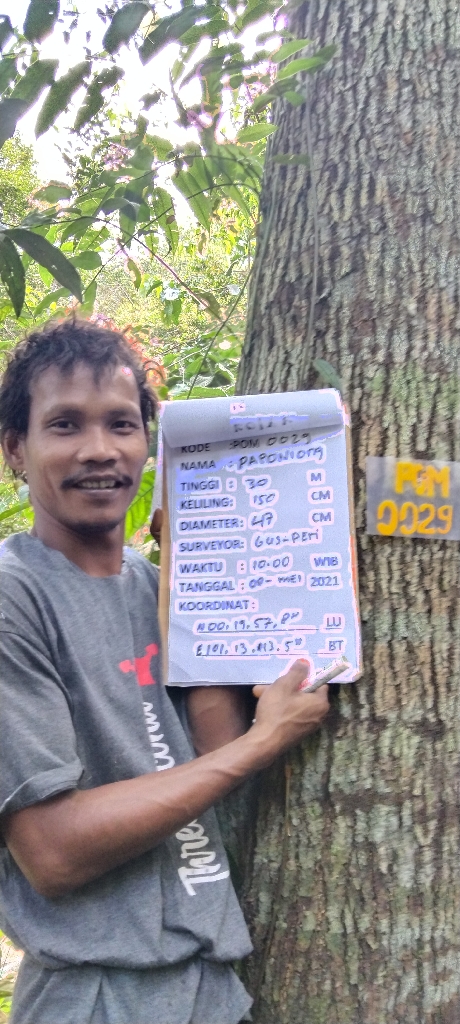 KODE :POM 0029
NAMA :
TINGGI : 30 M
KELILING: 150 CM
DIAMETER: 47 CM
SURVEYOR: Gus-Peri
WAKTU : 10.00 WIB
TANGGAL : 08- MEI 2021
KOORDINAT:
N 00. 19. 57. 8" LU
E 101. 13. 43. 5" BT
POM
0029
Thre